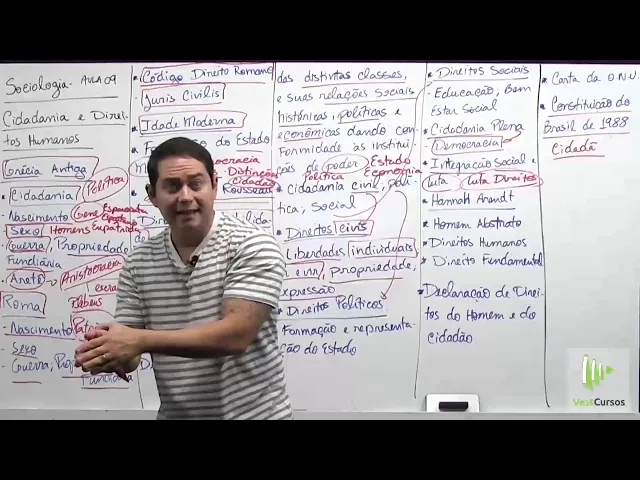 Sociologia - AULA 09
Cidadania e Direi-
tos Humanos
Grécia Antiga
Cidadania
Política
Nascimento
Sexo Homens Eupatrida
Guerra, Propriedade
Fundiária
Aristocracia
Roma
Plebeus
Nascimento
Sexo
Guerra, Prop
Fundiária
Código Direito Romano
Juris Civilis
Idade Moderna
do Estado
Distinção
cidadão
Rousseau
das distintas classes,
e suas relações sociais
históricas, políticas e
econômicas dando con-
formidade as institui-
ções de poder Estado
Política Economia
Cidadania civil, polí-
tica, Social
Direitos civis
Liberdades individuais
e vir, propriedade,
expressão
Direitos Políticos
Formação e representa-
ção do Estado
Direitos Sociais
Educação, Bem
Estar Social
Cidadania Plena
Democracia
Integração Social e
luta luta Direitos
Hannah Arendt
Homem Abstrato
Direitos Humanos
Direito Fundamental
Declaração de Direi-
tos do Homem e do
cidadão
Carta da O.N.U
Constituição do
Brasil de 1988
Cidadã
VestCursos